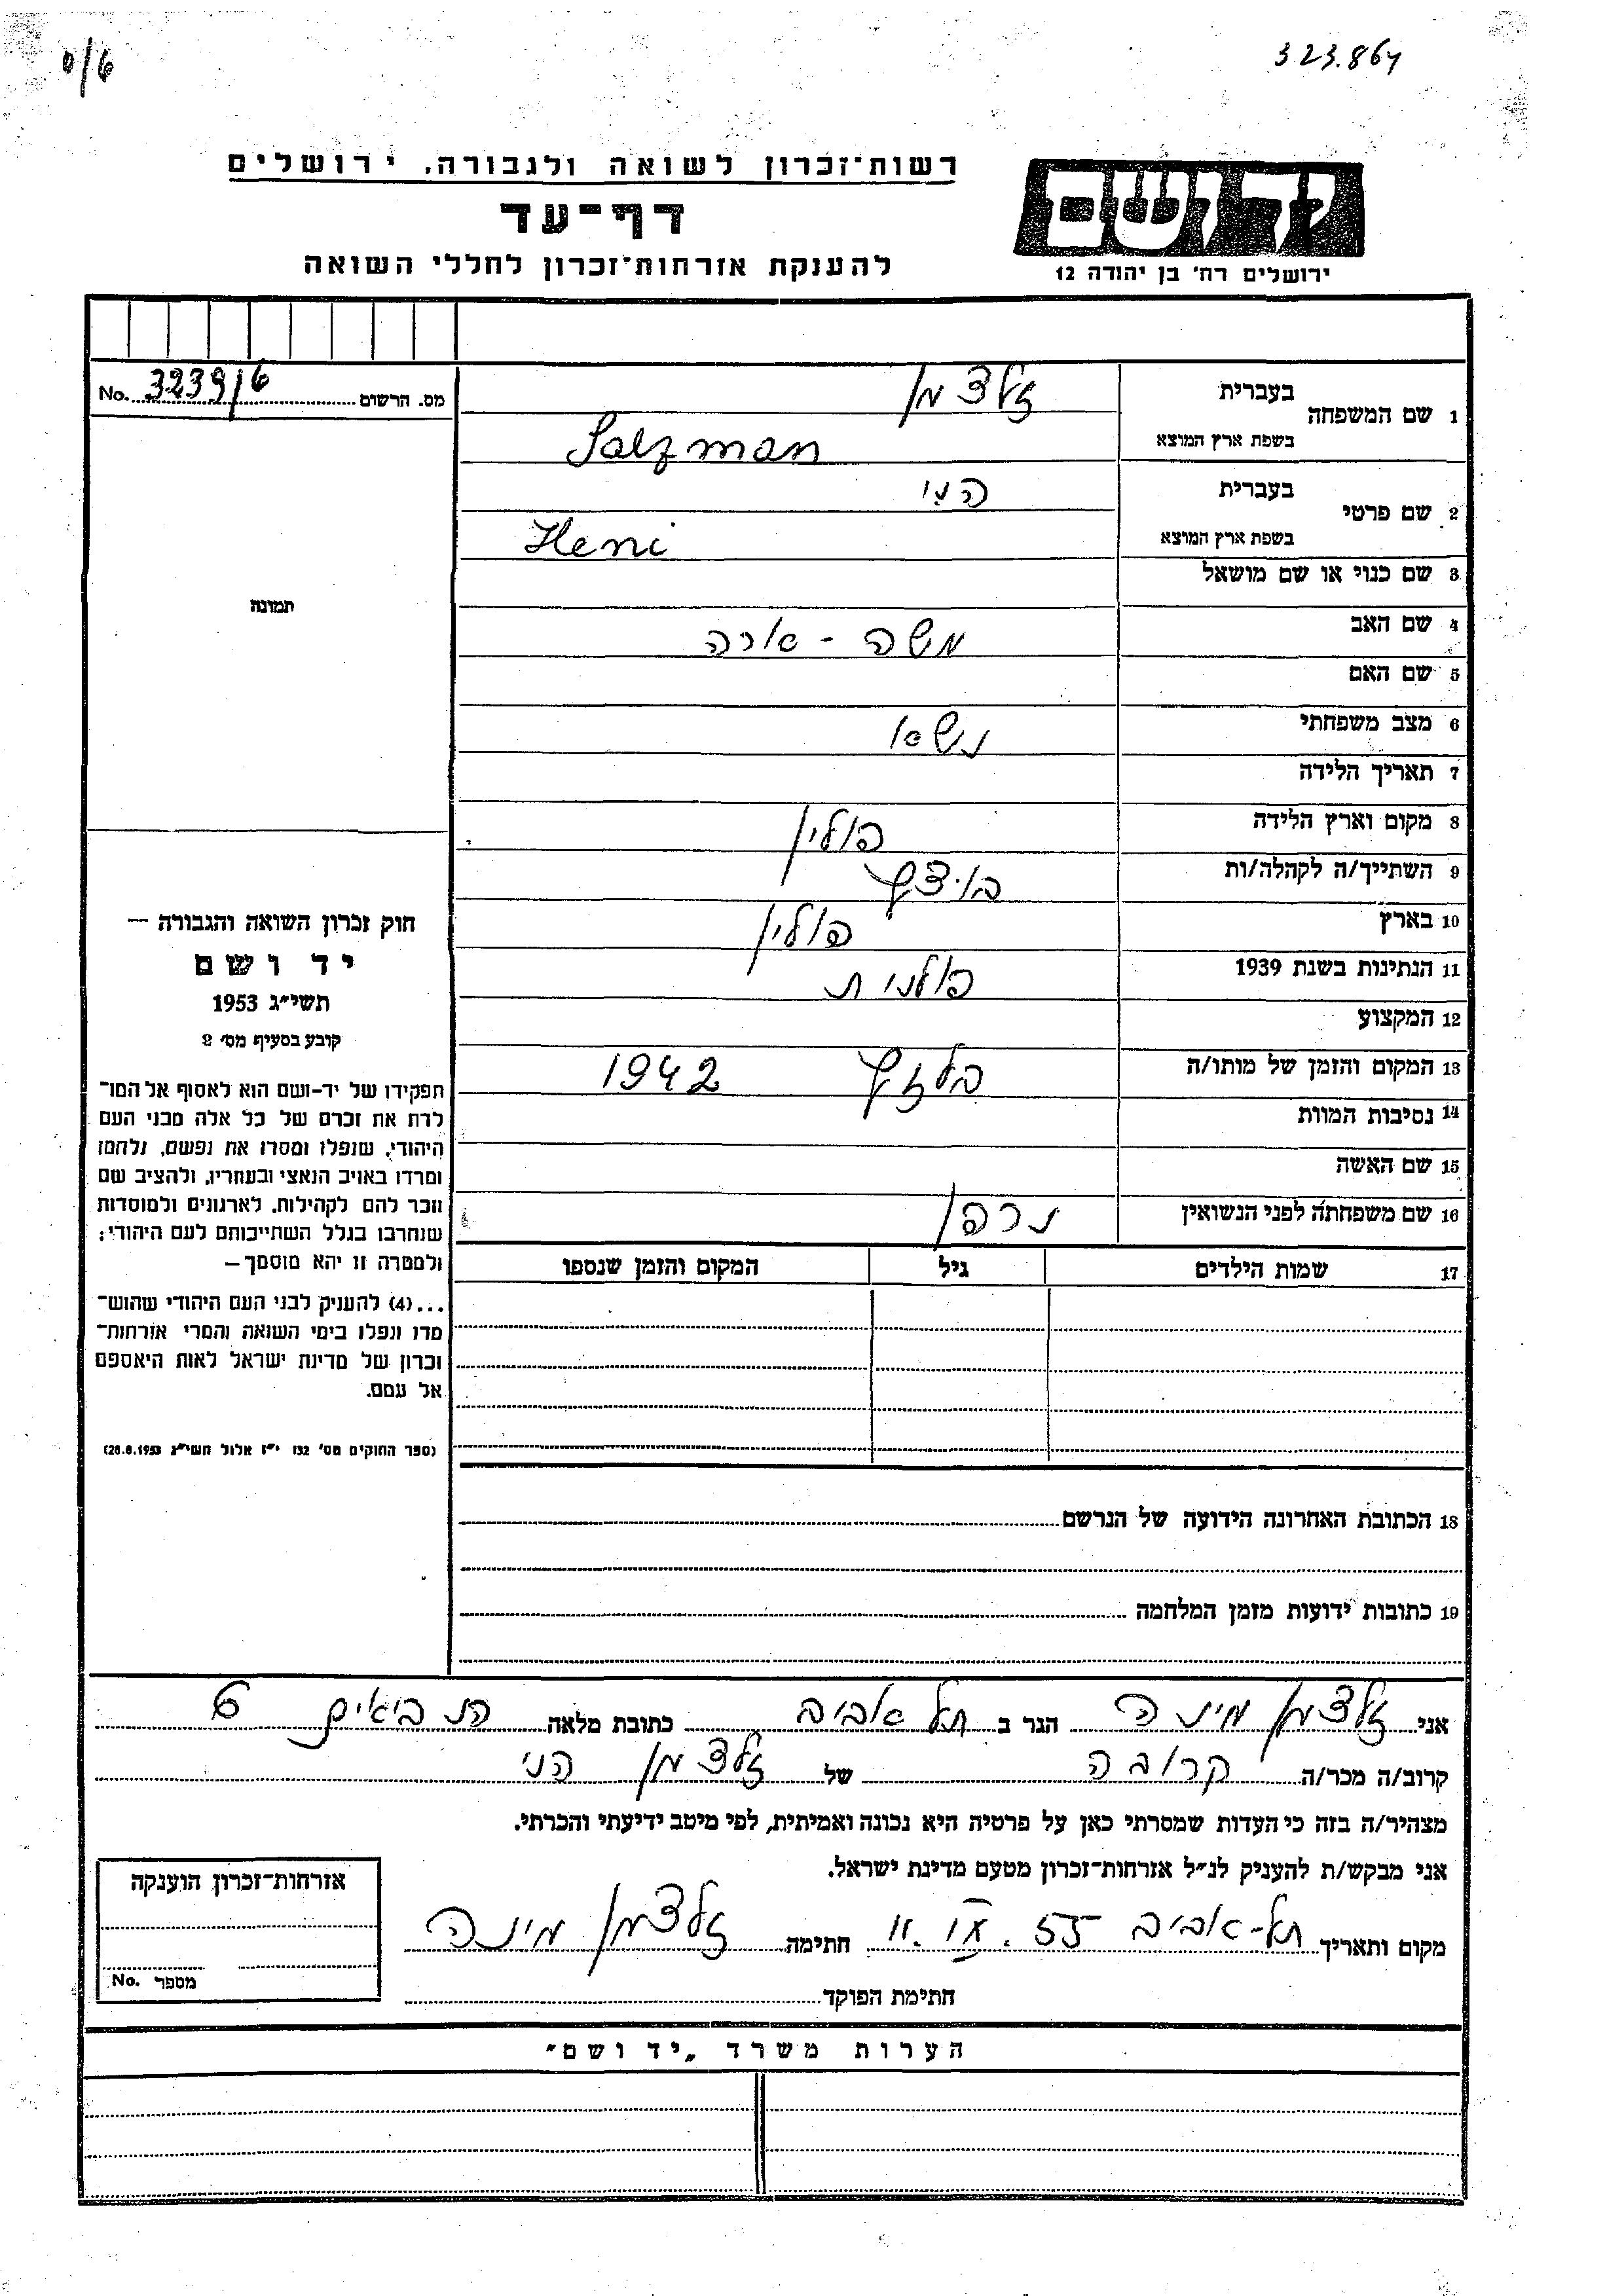 323.864
0/6
רשות־זכרון לשואה ולגבורה, ירושלים
דף־עד
להענקת אזרחות־זכרון לחללי השואה
יד ושם
ירושלים רח' בן יהודה 12
מס. הרשום 3239/6 No.
1 שם המשפחה בעברית זלצמן
בשפת ארץ המוצא Salzman
2 שם פרטי בעברית הני
בשפת ארץ המוצא Heni
3 שם כנוי או שם מושאל
תמונה
4 שם האב משה - אריה
5 שם האם
6 מצב משפחתי נשוא
7 תאריך הלידה
8 מקום וארץ הלידה פולין
9 השתייך/ה לקהלה/ות
10 בארץ פולין
11 הנתינות בשנת 1939 פולנית
12 המקצוע
13 המקום והזמן של מותו/ה בלזץ 1942
14 נסיבות המוות
15 שם האשה
16 שם משפחתה לפני הנשואין
17 שמות הילדים גיל המקום והזמן שנספו
חוק זכרון השואה והגבורה —
יד ושם
תשי״ג 1953
קובע בסעיף מס׳ 2
תפקידו של יד-ושם הוא לאסוף אל המו־
לדת את זכרם של כל אלה מבני העם
היהודי, שנפלו ומסרו את נפשם, נלחמו
ומרדו באויב הנאצי ובעוזריו, ולהציב שם
וזכר להם לקהילות, לארגונים ולמוסדות
שנחרבו בגלל השתייכותם לעם היהודי;
ולמטרה זו יהא מוסמך —
...(4) להעניק לבני העם היהודי שהוש־
מדו ונפלו בימי השואה והמרי אזרחות־
זכרון של מדינת ישראל לאות היאספם
אל עמם.
(ספר החוקים מס׳ 132 י״ז אלול תשי״ג 28.8.1953)
18 הכתובת האחרונה הידועה של הנרשם
19 כתובות ידועות מזמן המלחמה
אני זלצמן מינה הגר ב תל אביב כתובת מלאה הנביאים 6
קרוב/ה מכר/ה קרובה של זלצמן הני
מצהיר/ה בזה כי העדות שמסרתי כאן על פרטיה היא נכונה ואמיתית, לפי מיטב ידיעתי והכרתי.
אני מבקש/ת להעניק לנ״ל אזרחות־זכרון מטעם מדינת ישראל.
מקום ותאריך תל-אביב 11. IX. 55 חתימה זלצמן מינה
חתימת הפוקד
אזרחות־זכרון הוענקה
מספר No.
הערות משרד „יד ושם״